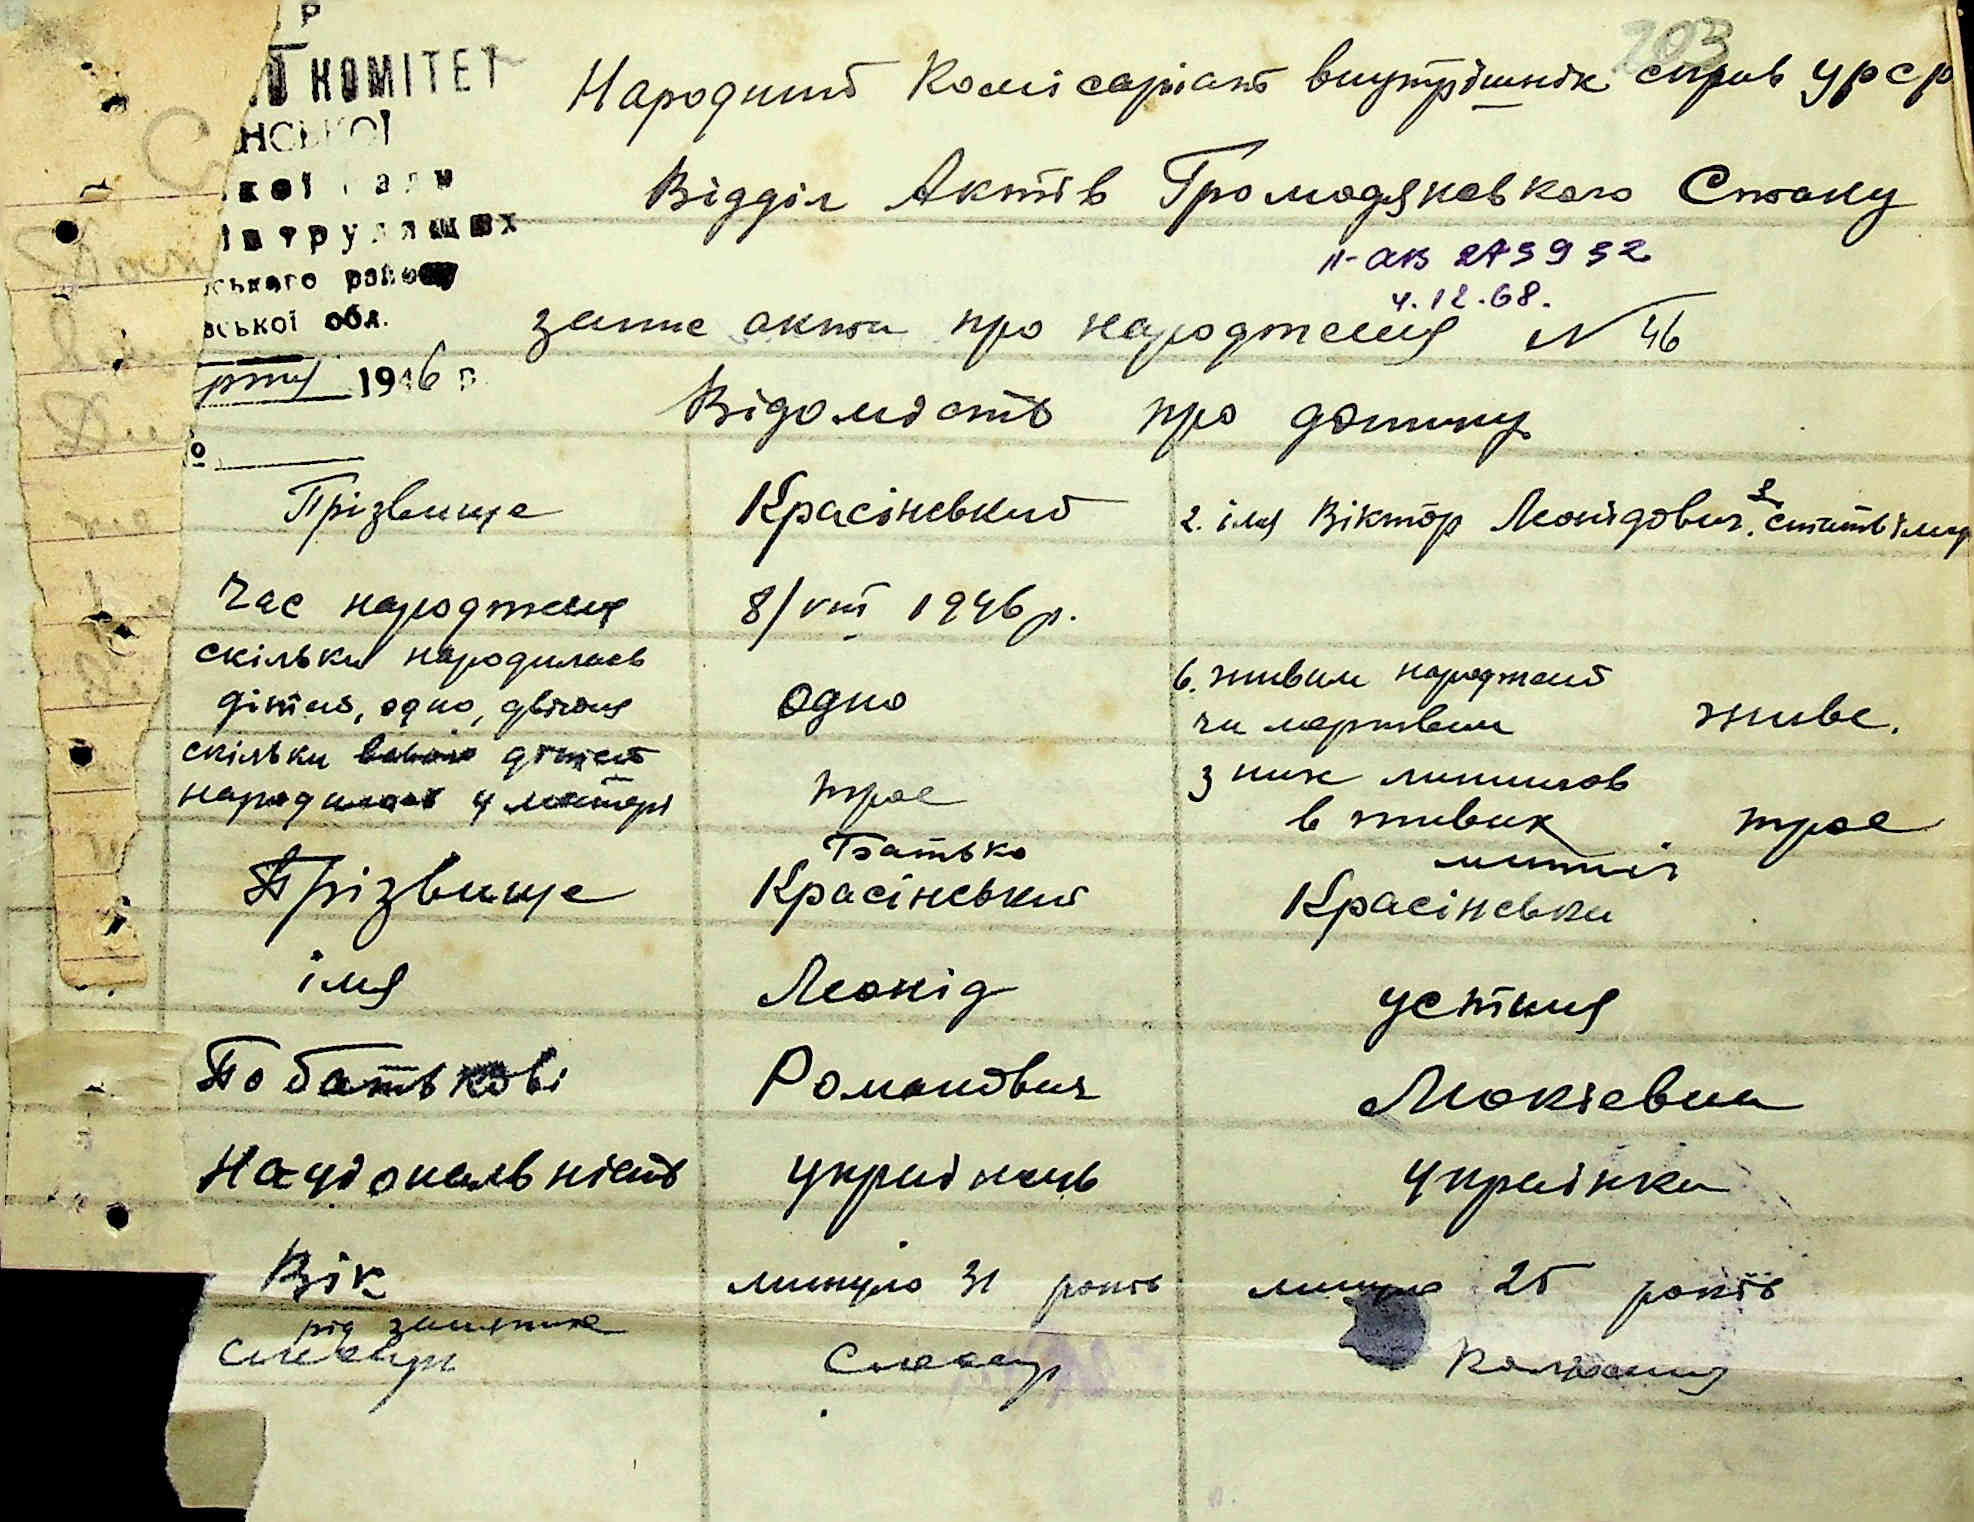 203
КОМІТЕТ
НСЬКОЇ
ського району
вської обл.
1946 р.
Народний Комісаріат внутрішніх справ УРСР
Відділ Актів Громадянського Стану
II-АВ 273932
4.12.68.
запис акта про народження N 46
Відомість про дитину
Прізвище Красінський 2. імя Віктор Леонідович. 3. стать
Час народження 8/VIII 1946 р.
скільки народилось дітей, одно, двійня одно 6. живим народжений чи мертвим живе.
скільки дітей народилось у матері троє з них лишилось в живих троє
Батько
Прізвище Красінський Красінська
імя Леонід Устиня
По батькові Романович
Національність українець українка
Вік минуло 31 років минуло 25 років
рід заняття
Слесар